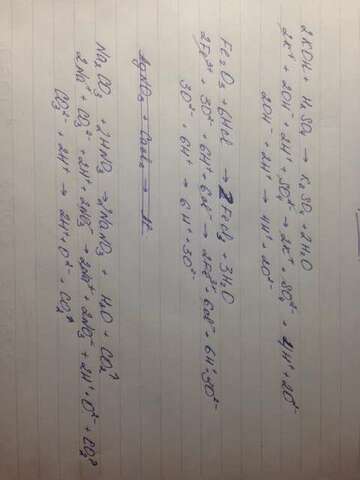 2KOH + H₂SO₄ → K₂SO₄ + 2H₂O
2K⁺ + 2OH⁻ + 2H⁺ + SO₄²⁻ → 2K⁺ + SO₄²⁻ + 4H⁺ + 2O²⁻
2OH⁻ + 2H⁺ → 4H⁺ + 2O²⁻
Fe₂O₃ + 6HCl → 2FeCl₃ + 3H₂O
2Fe³⁺ + 3O²⁻ + 6H⁺ + 6Cl⁻ → 2Fe³⁺ + 6Cl⁻ + 6H⁺ + 3O²⁻
3O²⁻ + 6H⁺ → 6H⁺ + 3O²⁻
Na₂CO₃ + 2HNO₃ → 2NaNO₃ + H₂O + CO₂↑
2Na⁺ + CO₃²⁻ + 2H⁺ + 2NO₃⁻ → 2Na⁺ + 2NO₃⁻ + 2H⁺ + O²⁻ + CO₂↑
CO₃²⁻ + 2H⁺ → 2H⁺ + O²⁻ + CO₂↑